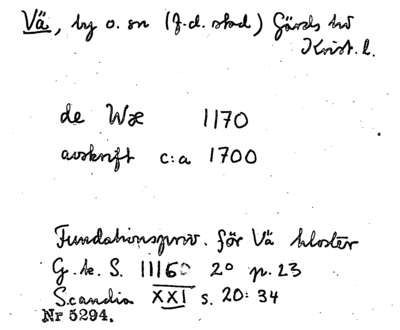 Vä, by o. sn (f.d. stad) Gärds hd
Krist. l.
de Wæ 1170
avskrift c:a 1700
Fundationspriv. för Vä kloster
G. k. S. 11160 2º p. 23
Scandia XXI s. 20: 34
Nr 5294.